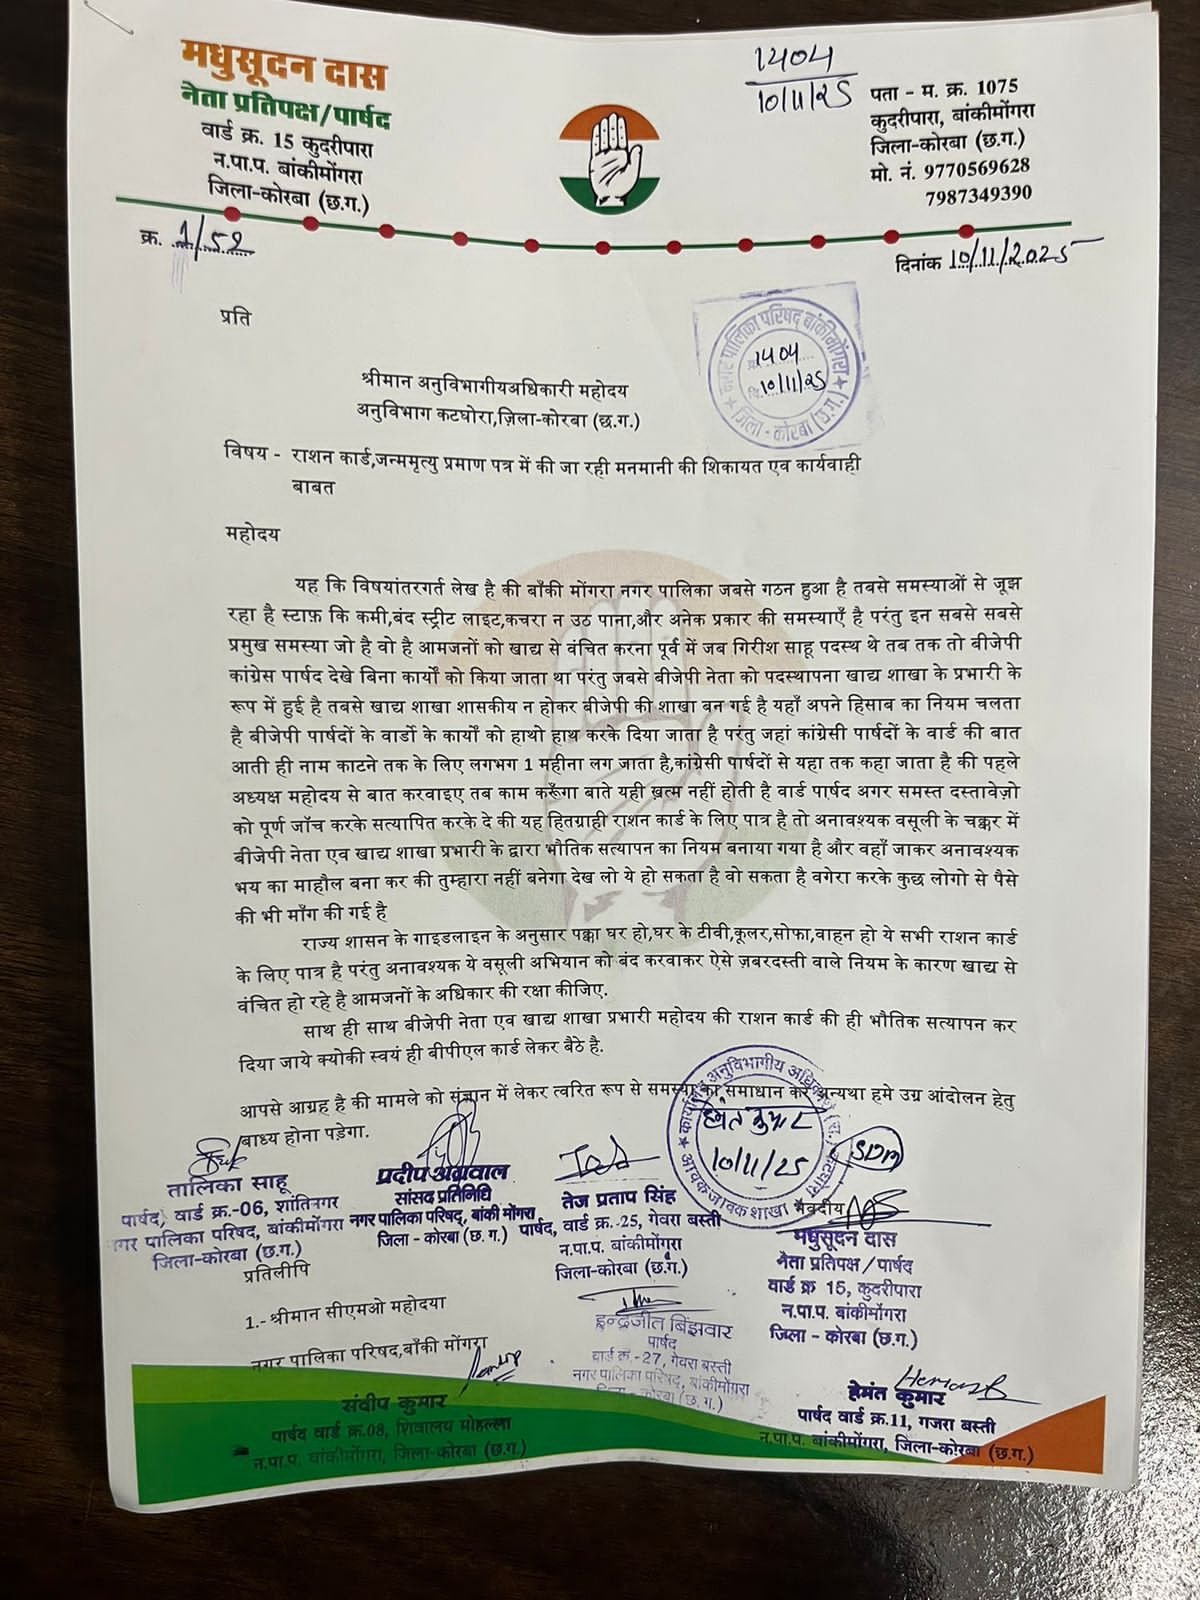 मधुसूदन दास
नेता प्रतिपक्ष/पार्षद
वार्ड क्र. 15 कुदरीपारा
न.पा.प. बांकीमोंगरा
जिला-कोरबा (छ.ग.)
1404
10/11/25
पता - म. क्र. 1075
कुदरीपारा, बांकीमोंगरा
जिला-कोरबा (छ.ग.)
मो. नं. 9770569628
7987349390
क्र. 1/52
दिनांक 10/11/2025
नगर पालिका परिषद बांकीमोंगरा
1404
10/11/25
जिला - कोरबा (छ.ग.)
प्रति
श्रीमान अनुविभागीयअधिकारी महोदय
अनुविभाग कटघोरा,ज़िला-कोरबा (छ.ग.)
विषय - राशन कार्ड,जन्ममृत्यु प्रमाण पत्र में की जा रही मनमानी की शिकायत एव कार्यवाही
बाबत
महोदय
यह कि विषयांतरगर्त लेख है की बाँकी मोंगरा नगर पालिका जबसे गठन हुआ है तबसे समस्याओं से जूझ
रहा है स्टाफ़ कि कमी,बंद स्ट्रीट लाइट,कचरा न उठ पाना,और अनेक प्रकार की समस्याएँ है परंतु इन सबसे सबसे
प्रमुख समस्या जो है वो है आमजनों को खाद्य से वंचित करना पूर्व में जब गिरीश साहू पदस्थ थे तब तक तो बीजेपी
कांग्रेस पार्षद देखे बिना कार्यों को किया जाता था परंतु जबसे बीजेपी नेता को पदस्थापना खाद्य शाखा के प्रभारी के
रूप में हुई है तबसे खाद्य शाखा शासकीय न होकर बीजेपी की शाखा बन गई है यहाँ अपने हिसाब का नियम चलता
है बीजेपी पार्षदों के वार्डो के कार्यों को हाथो हाथ करके दिया जाता है परंतु जहां कांग्रेसी पार्षदों के वार्ड की बात
आती ही नाम काटने तक के लिए लगभग 1 महीना लग जाता है,कांग्रेसी पार्षदों से यहा तक कहा जाता है की पहले
अध्यक्ष महोदय से बात करवाइए तब काम करूँगा बाते यही ख़त्म नहीं होती है वार्ड पार्षद अगर समस्त दस्तावेज़ो
को पूर्ण जाँच करके सत्यापित करके दे की यह हितग्राही राशन कार्ड के लिए पात्र है तो अनावश्यक वसूली के चक्कर में
बीजेपी नेता एव खाद्य शाखा प्रभारी के द्वारा भौतिक सत्यापन का नियम बनाया गया है और वहाँ जाकर अनावश्यक
भय का माहौल बना कर की तुम्हारा नहीं बनेगा देख लो ये हो सकता है वो सकता है वगेरा करके कुछ लोगो से पैसे
की भी माँग की गई है
राज्य शासन के गाइडलाइन के अनुसार पक्का घर हो,घर के टीवी,कूलर,सोफा,वाहन हो ये सभी राशन कार्ड
के लिए पात्र है परंतु अनावश्यक ये वसूली अभियान को बंद करवाकर ऐसे ज़बरदस्ती वाले नियम के कारण खाद्य से
वंचित हो रहे है आमजनों के अधिकार की रक्षा कीजिए.
साथ ही साथ बीजेपी नेता एव खाद्य शाखा प्रभारी महोदय की राशन कार्ड की ही भौतिक सत्यापन कर
दिया जाये क्योकी स्वयं ही बीपीएल कार्ड लेकर बैठे है.
आपसे आग्रह है की मामले को संज्ञान में लेकर त्वरित रूप से समस्या का समाधान करे अन्यथा हमे उग्र आंदोलन हेतु
बाध्य होना पड़ेगा.
कार्यालय अनुविभागीय अधिकारी (रा.)
आवकजावक शाखा
10/11/25
SDM
तालिका साहू
पार्षद, वार्ड क्र.-06, शांतिनगर
नगर पालिका परिषद, बांकीमोंगरा
जिला-कोरबा (छ.ग.)
प्रदीप अग्रवाल
सांसद प्रतिनिधि
नगर पालिका परिषद्, बांकी मोंगरा
जिला - कोरबा (छ. ग.)
तेज प्रताप सिंह
पार्षद, वार्ड क्र.-25, गेवरा बस्ती
न.पा.प. बांकीमोंगरा
जिला-कोरबा (छ.ग.)
भवदीय
मधुसूदन दास
नेता प्रतिपक्ष/पार्षद
वार्ड क्र 15, कुदरीपारा
न.पा.प. बांकीमोंगरा
जिला - कोरबा (छ.ग.)
प्रतिलीपि
1.- श्रीमान सीएमओ महोदया
नगर पालिका परिषद,बाँकी मोंगरा
इन्द्रजीत बिंझवार
पार्षद
वार्ड क्र.-27, गेवरा बस्ती
नगर पालिका परिषद, बांकीमोंगरा
जिला - कोरबा (छ.ग.)
संदीप कुमार
पार्षद वार्ड क्र.08, शिवालय मोहल्ला
न.पा.प. बांकीमोंगरा, जिला-कोरबा (छ.ग.)
हेमंत कुमार
पार्षद वार्ड क्र.11, गजरा बस्ती
न.पा.प. बांकीमोंगरा, जिला-कोरबा (छ.ग.)